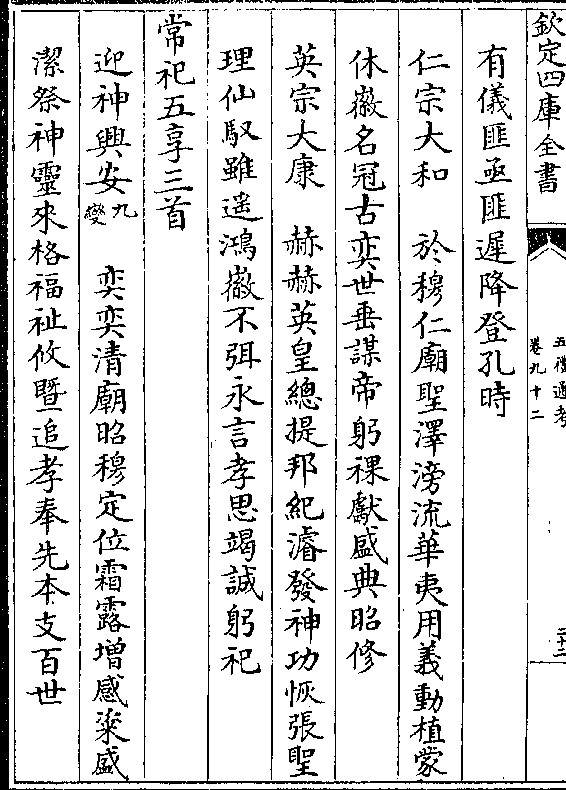 欽定四庫全書
五禮通考
卷九十二
有儀匪亟匪遲降登孔時
仁宗大和　於穆仁廟聖澤滂流華夷用義動植蒙
休徽名冠古奕世垂謀帝躬祼獻盛典昭修
英宗大康　赫赫英皇總提邦紀濬發神功恢張聖
理仙馭雖遥鴻徽不弭永言孝思竭誠躬祀
常祀五享三首
迎神興安九變　奕奕清廟昭穆定位霜露增感粢盛
潔祭神靈來格福祉攸暨追孝奉先本支百世